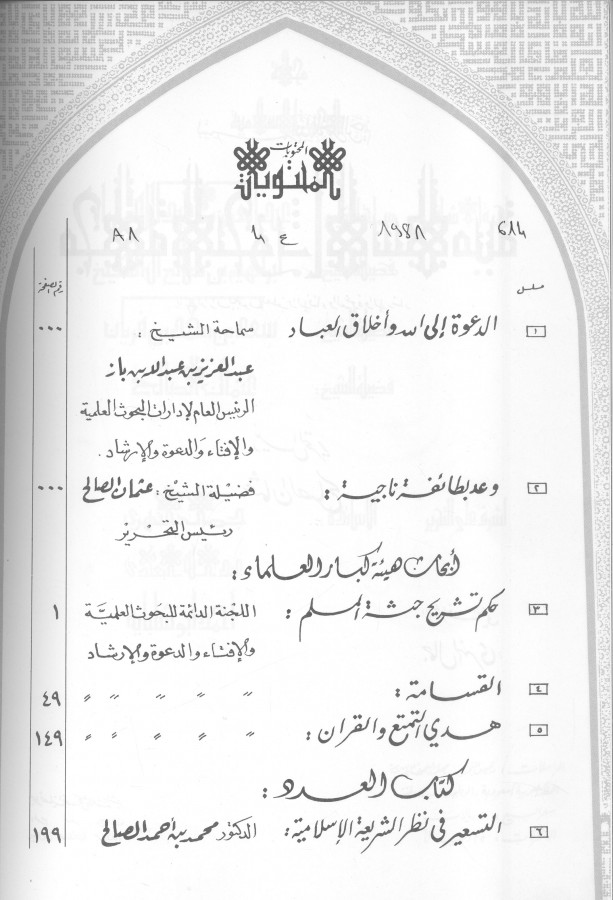 المحتويات
المحتويات
٦٨٤ ١٩٨٨ ع ٤ ٨٨
مسلسل رقم الصفحة
١ الدعوة إلى الله وأخلاق العباد سماحة الشيخ : ...
عبد العزيز بن عبد الله بن باز
الرئيس العام لإدارات البحوث العلمية
والإفتاء والدعوة والإرشاد .
٢ وعد بطائفة ناجية : فضيلة الشيخ : عثمان الصالح ...
رئيس التحرير
أبحاث هيئة كبار العلماء :
٣ حكم تشريح جثة المسلم : اللجنة الدائمة للبحوث العلمية ١
والإفتاء والدعوة والإرشاد
٤ القسامة : " " " " " ٤٩
٥ هدي التمتع والقران : " " " " " ١٤٩
كتاب العدد :
٦ التسعير في نظر الشريعة الإسلامية : الدكتور محمد بن أحمد الصالح ١٩٩